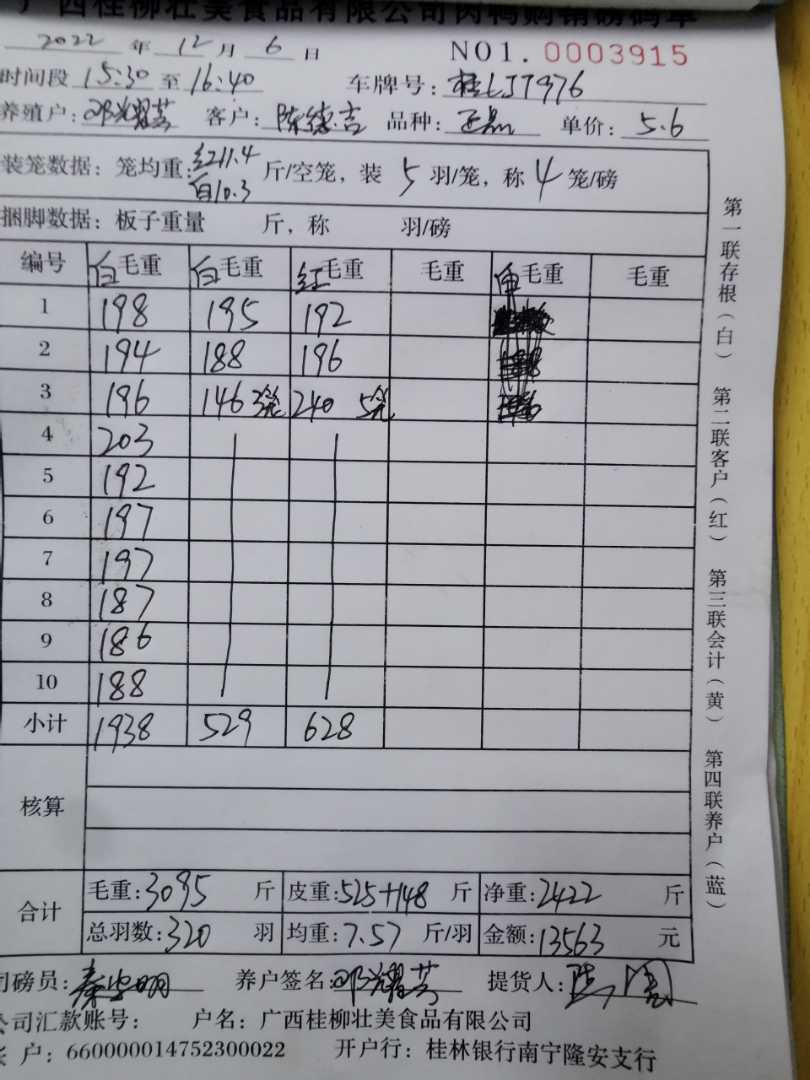 广西桂柳壮美食品有限公司肉鸭购销磅码单
2022 年 12 月 6 日 NO1. 0003915
时间段 15:30 至 16:40 车牌号:
养殖户:邓耀芸 客户:陈德吉 品种: 单价:5.6
装笼数据:笼均重:红11.4 白10.3 斤/空笼,装 5 羽/笼,称 4 笼/磅
捆脚数据:板子重量 斤,称 羽/磅
编号 白毛重 白毛重 红毛重 毛重 毛重 毛重
1 198 195 192
2 194 188 196
3 196 146 3笼 240 5笼
4 203
5 192
6 197
7 197
8 187
9 186
10 188
小计 1938 529 628
核算
合计 毛重:3095 斤 皮重:525+148 斤 净重:2422 斤
总羽数:320 羽 均重:7.57 斤/羽 金额:13563 元
司磅员: 养户签名:邓耀芸 提货人:
公司汇款账号: 户名:广西桂柳壮美食品有限公司
账 户:660000014752300022 开户行:桂林银行南宁隆安支行
第一联存根(白) 第二联客户(红) 第三联会计(黄) 第四联养户(蓝)